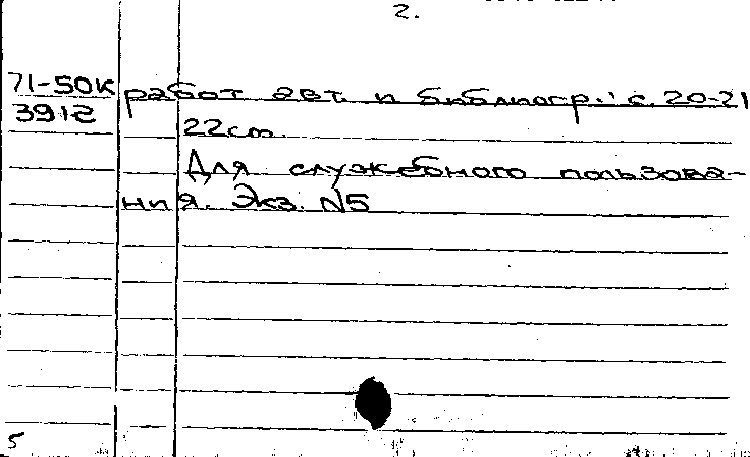 2.
71-50к работ авт. и библиогр.: с. 20-21
3912
22см.
Для служебного пользова-
ния. Экз. №5
5